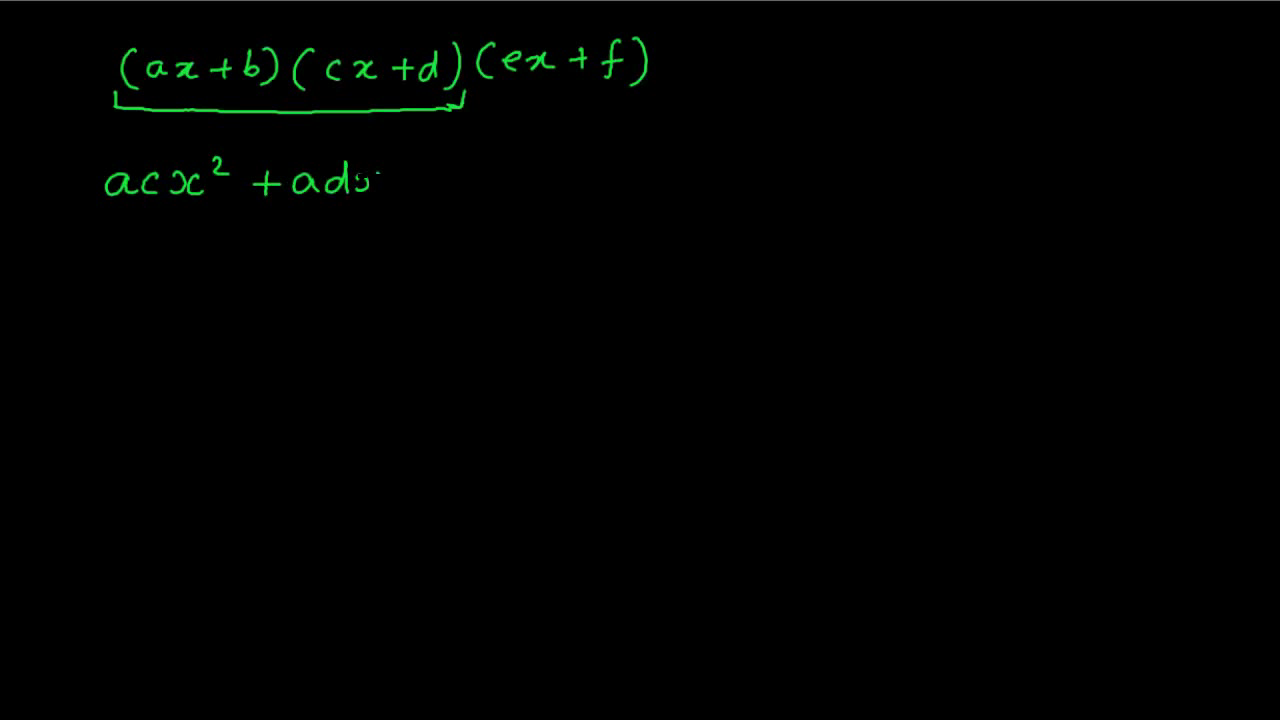 (ax+b)(cx+d)(ex+f)
acx² + ad